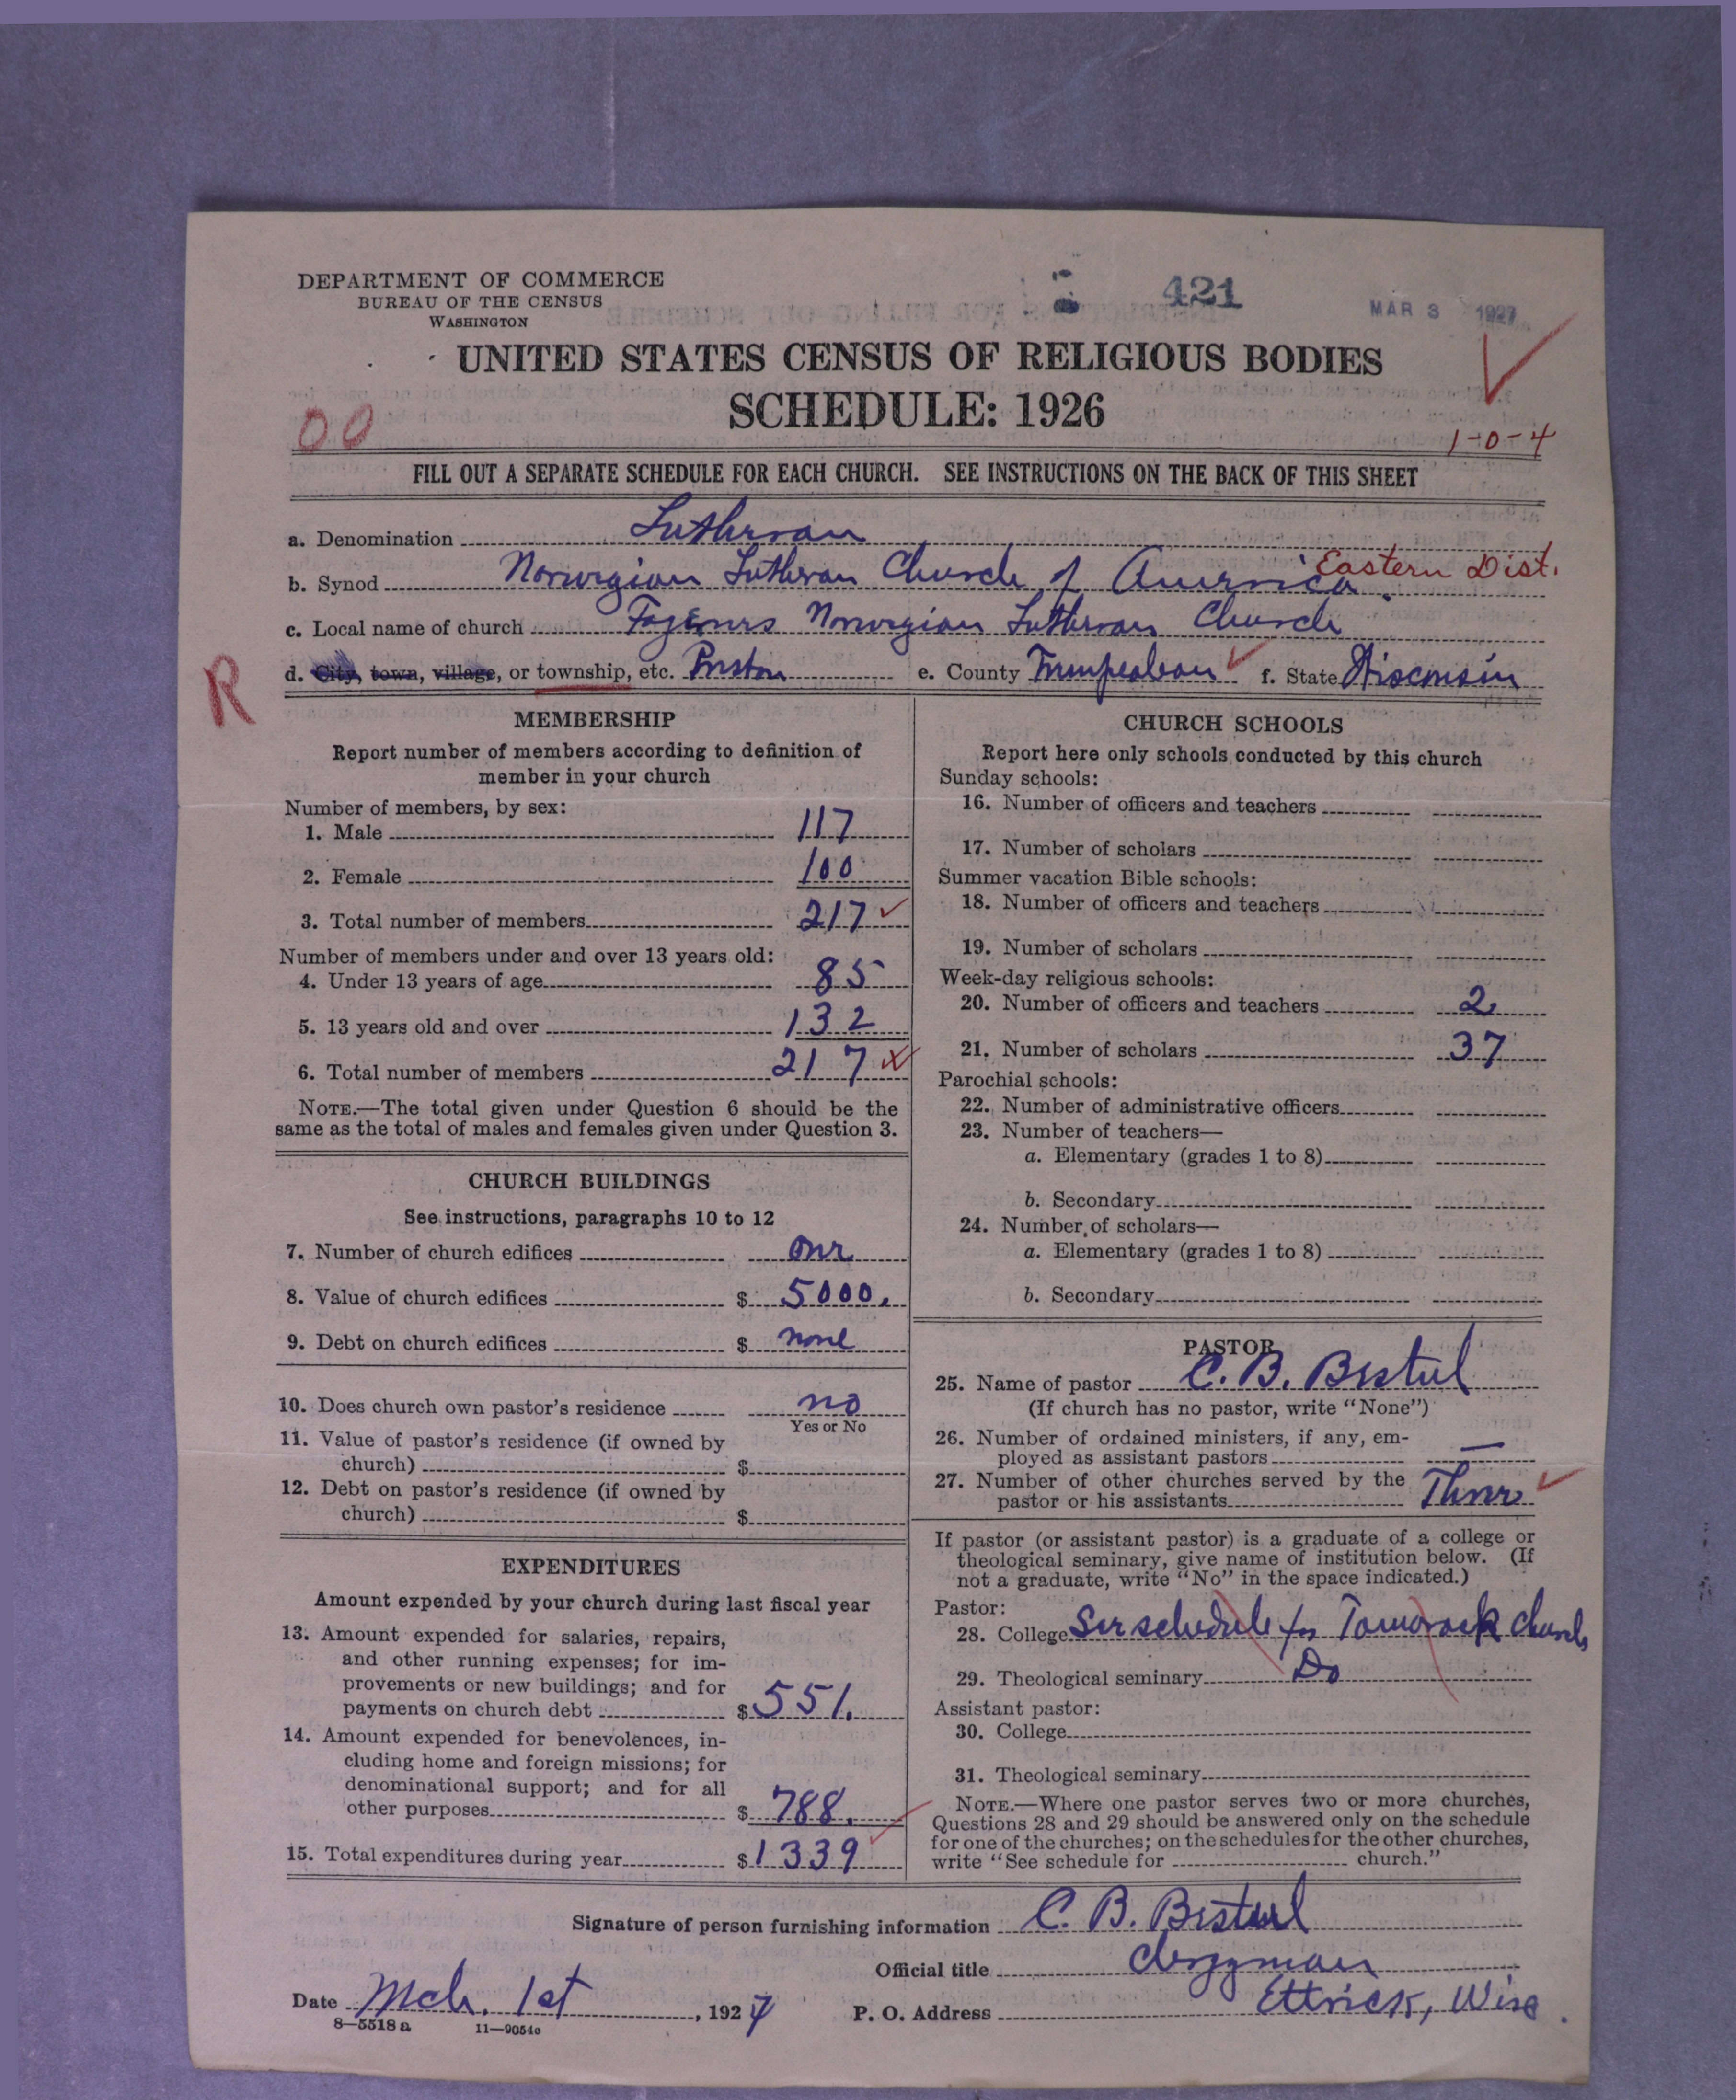 DEPARTMENT OF COMMERCE
BUREAU OF THE CENSUS
WASHINGTON
421
MAR 3 1927
UNITED STATES CENSUS OF RELIGIOUS BODIES
SCHEDULE: 1926
00
1-0-4
FILL OUT A SEPARATE SCHEDULE FOR EACH CHURCH. SEE INSTRUCTIONS ON THE BACK OF THIS SHEET
a. Denomination Lutheran
b. Synod Norwegian Lutheran Church of America. Eastern Dist.
c. Local name of church Norwegian Lutheran Church
R
d. City, town, village, or township, etc. Preston e. County Trempealeau f. State Wisconsin
MEMBERSHIP
Report number of members according to definition of
member in your church
Number of members, by sex:
1. Male 117
2. Female 100
3. Total number of members 217
Number of members under and over 13 years old:
4. Under 13 years of age 85
5. 13 years old and over 132
6. Total number of members 217
NOTE.—The total given under Question 6 should be the
same as the total of males and females given under Question 3.
CHURCH BUILDINGS
See instructions, paragraphs 10 to 12
7. Number of church edifices one
8. Value of church edifices $ 5000.
9. Debt on church edifices $ none
10. Does church own pastor's residence no
Yes or No
11. Value of pastor's residence (if owned by
church) $
12. Debt on pastor's residence (if owned by
church) $
EXPENDITURES
Amount expended by your church during last fiscal year
13. Amount expended for salaries, repairs,
and other running expenses; for im-
provements or new buildings; and for
payments on church debt $ 551.
14. Amount expended for benevolences, in-
cluding home and foreign missions; for
denominational support; and for all
other purposes $ 788.
15. Total expenditures during year $ 1339
CHURCH SCHOOLS
Report here only schools conducted by this church
Sunday schools:
16. Number of officers and teachers
17. Number of scholars
Summer vacation Bible schools:
18. Number of officers and teachers
19. Number of scholars
Week-day religious schools:
20. Number of officers and teachers 2
21. Number of scholars 37
Parochial schools:
22. Number of administrative officers
23. Number of teachers—
a. Elementary (grades 1 to 8)
b. Secondary
24. Number of scholars—
a. Elementary (grades 1 to 8)
b. Secondary
PASTOR
25. Name of pastor C. B. Bestul
(If church has no pastor, write "None")
26. Number of ordained ministers, if any, em-
ployed as assistant pastors —
27. Number of other churches served by the
pastor or his assistants Three
If pastor (or assistant pastor) is a graduate of a college or
theological seminary, give name of institution below. (If
not a graduate, write "No" in the space indicated.)
Pastor:
28. College See schedule for Tamarack church
29. Theological seminary Do
Assistant pastor:
30. College
31. Theological seminary
NOTE.—Where one pastor serves two or more churches,
Questions 28 and 29 should be answered only on the schedule
for one of the churches; on the schedules for the other churches,
write "See schedule for church."
Signature of person furnishing information C. B. Bestul
Official title clergyman
Date Mch. 1st, 1927 P. O. Address Ettrick, Wise.
8—5518 a 11—9054c